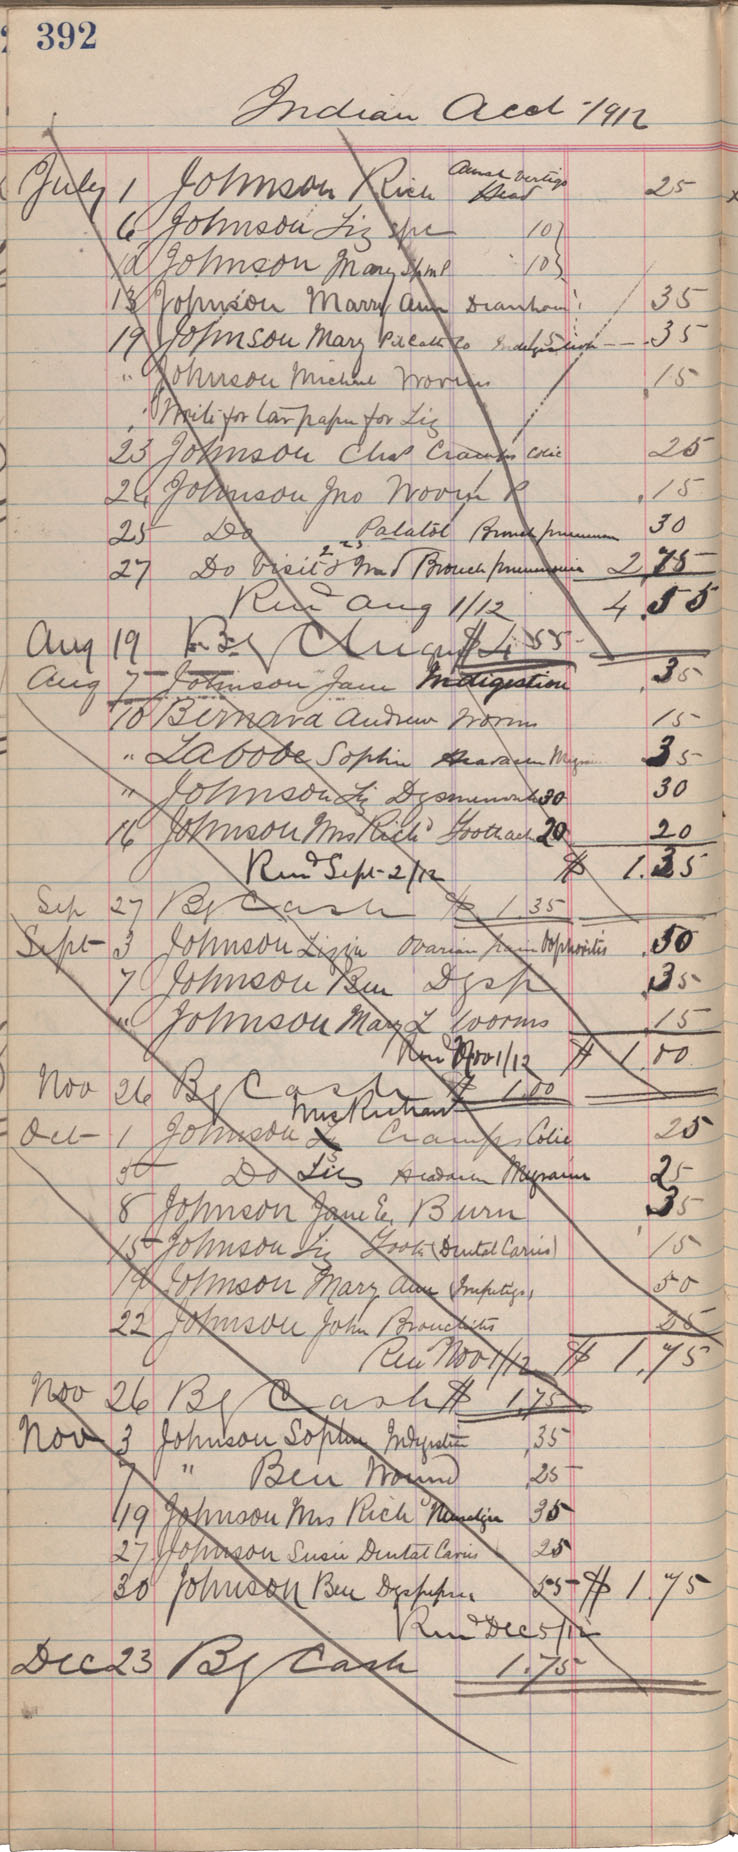 392
Indian Acct 1912
July 1 Johnson Rich vertigo Head 25
6 Johnson Liz 10
12 Johnson Mary 10
13 Johnson Marry Ann 35
19 Johnson Mary Indigestion 35
" Johnson Michael Worms .15
" Write for tar paper for Liz
23 Johnson Chas Cramps Colic 25
24 Johnson Jno Worm P .15
25 Do Palatol Bronch pneumonia 30
27 Do Visit & Med Bronch pneumonia 2.75
Rend Aug 1/12 4.55
Aug 19 By Cheque $4.55
Aug 7 Johnson Jane Indigestion .35
10 Bernard Andrew Worms 15
" LaBobe Sophie 35
" Johnson Liz 30 30
16 Johnson Mrs Rich Toothache 20 20
Rend Sept 2/12 $ 1.35
Sep 27 By Cash $ 1.35
Sept 3 Johnson Lizzie Ovarian pain Oophoritis .50
7 Johnson Ben Dysp .35
" Johnson Mary L Worms .15
Rend Nov 1/12 $ 1.00
Nov 26 By Cash $ 1.00
Mrs
Oct 1 Johnson Cramps Colic 25
5 Do Liz Migraine 25
8 Johnson Jane E. Burn 35
15 Johnson Liz Tooth (Dental Caries) 15
19 Johnson Mary Ann (Impetigo) 50
22 Johnson John Bronchitis 25
Rend Nov 1/12 $ 1.75
Nov 26 By Cash $ 1.75
Nov 3 Johnson Sophie Indigestion .35
7 " Ben Wound .25
19 Johnson Mrs Rich Neuralgia 35
27 Johnson Susie Dental Caries 25
30 Johnson Ben Dyspepsia 55 $ 1.75
Rend Dec 5/12
Dec 23 By Cash 1.75